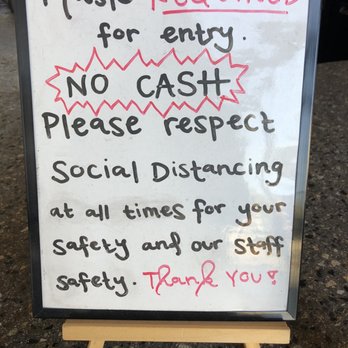 Masks REQUIRED
for entry.
NO CASH
Please respect
Social Distancing
at all times for your
safety and our staff
safety. Thank you!